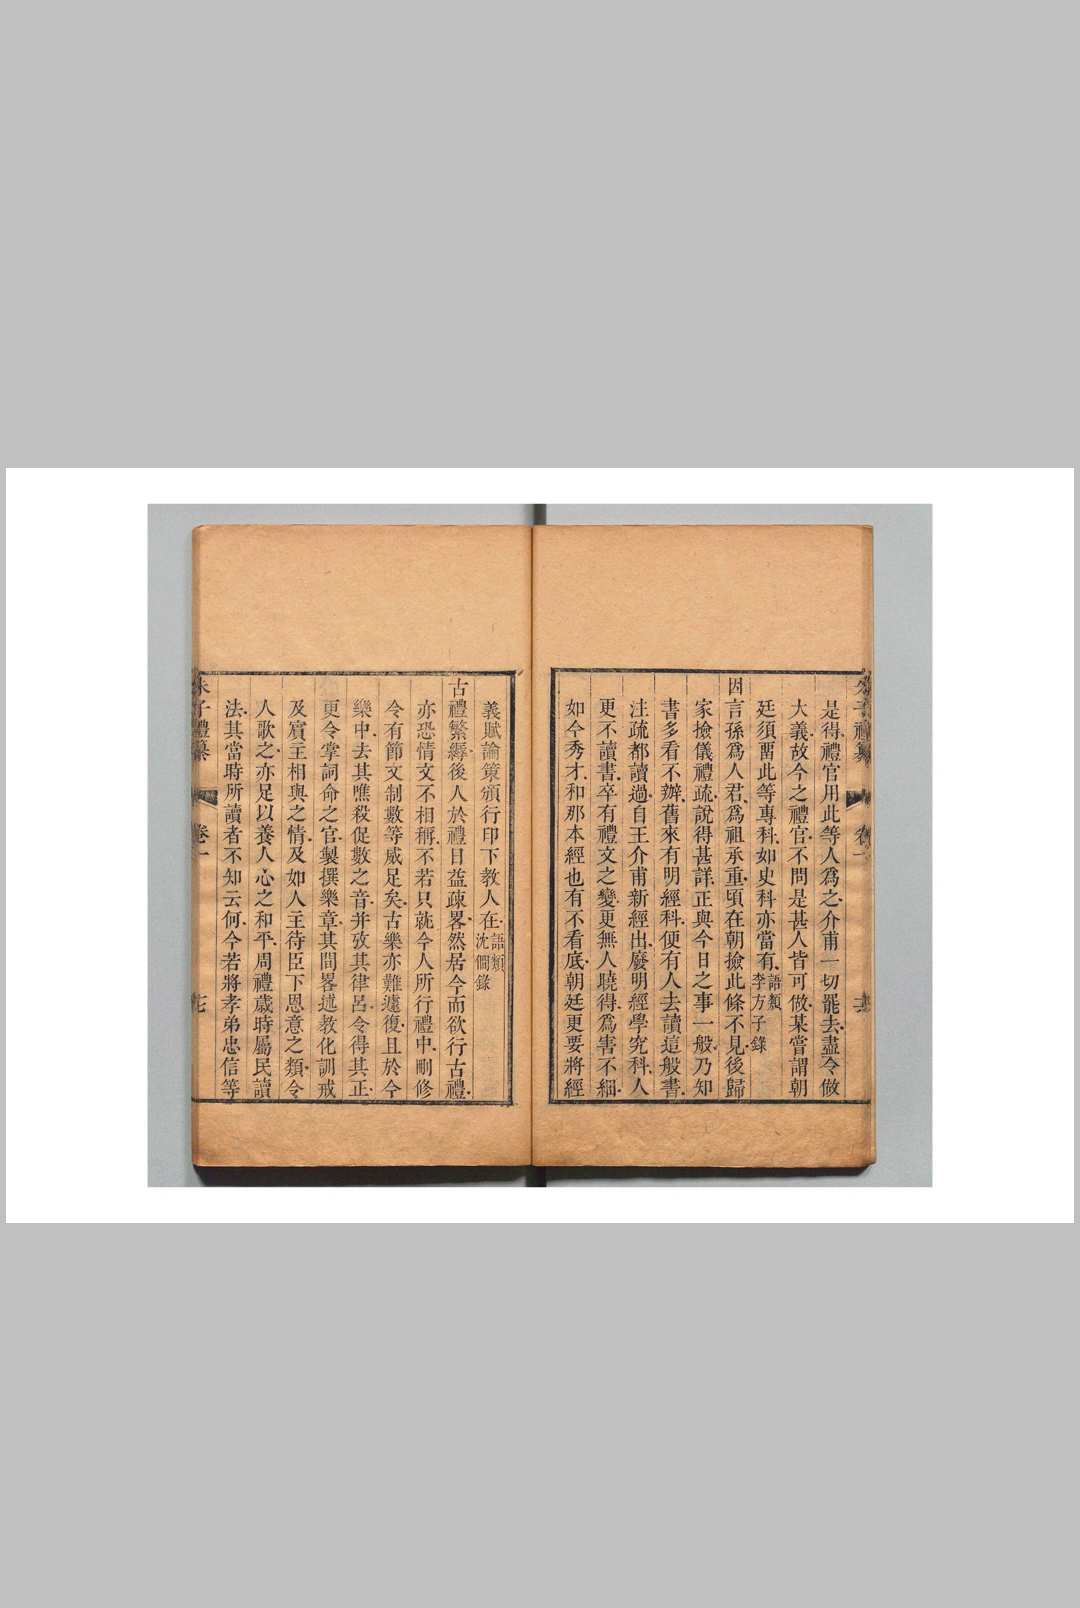 是得禮官用此等人爲之介甫一切罷去盡令做
大義故今之禮官不問是甚人皆可做某嘗謂朝
廷須畱此等專科如史科亦當有語類李方子錄
因言孫爲人君爲祖承重頃在朝撿此條不見後歸
家撿儀禮疏說得甚詳正與今日之事一般乃知
書多看不辦舊來有明經科便有人去讀這般書
注疏都讀過自王介甫新經出廢明經學究科人
更不讀書卒有禮文之變更無人曉得爲害不細
如今秀才和那本經也有不看底朝廷更要將經
義賦論策頒行印下教人在語類沈僩錄
古禮繁縟後人於禮日益疎畧然居今而欲行古禮
亦恐情文不相稱不若只就今人所行禮中刪修
令有節文制數等威足矣古樂亦難遽復且於今
樂中去其噍殺促數之音并攷其律呂令得其正
更令掌詞命之官製撰樂章其間畧述教化訓戒
及賔主相與之情及如人主待臣下恩意之類令
人歌之亦足以養人心之和平周禮歲時屬民讀
法其當時所讀者不知云何今若將孝弟忠信等
朱子禮纂 卷一